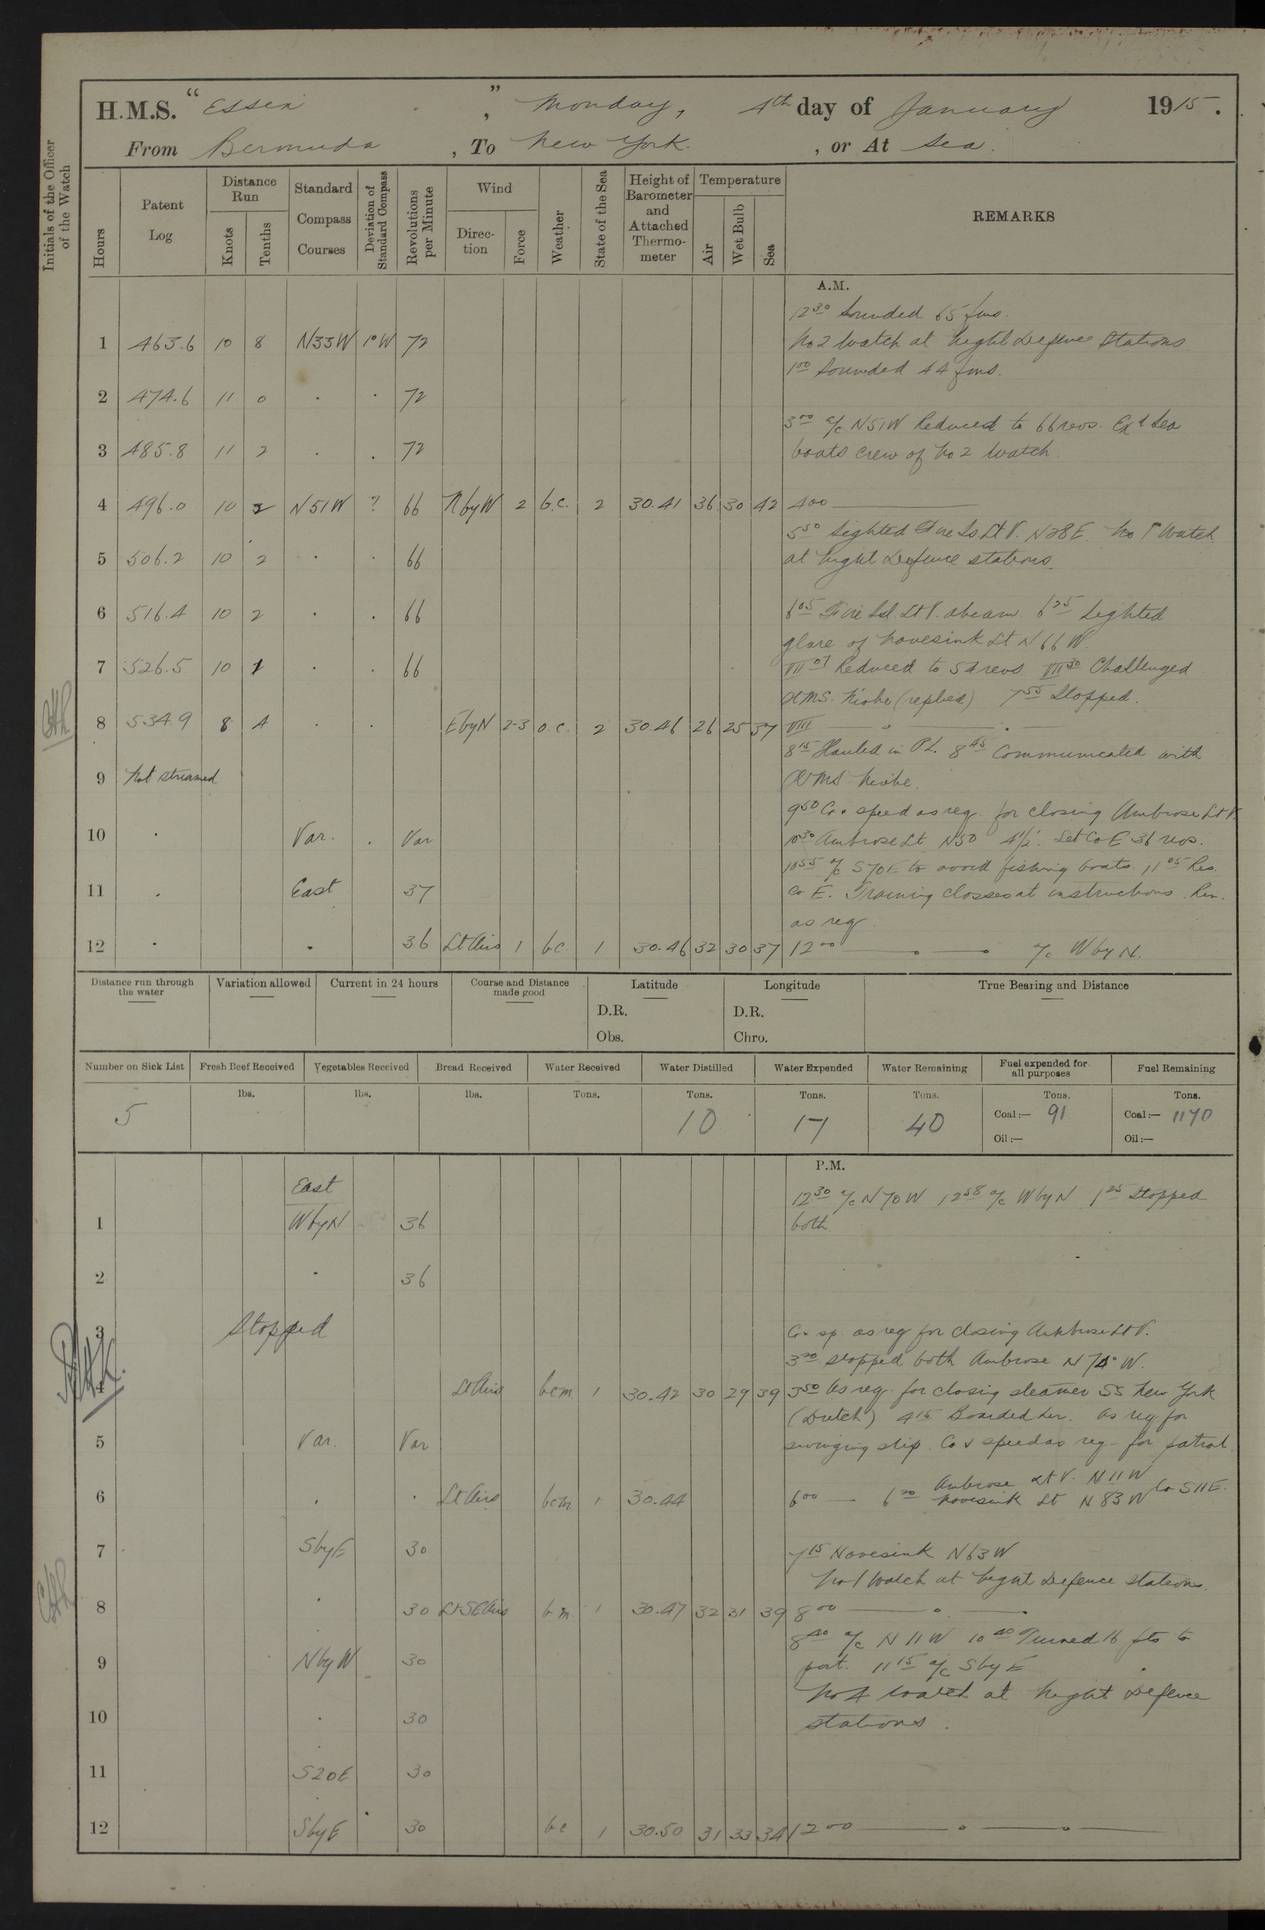 H.M.S. "Essex", Monday, 4th day of January 1915.
From Bermuda, To New York, or At Sea.
Initials of the Officer of the Watch
Hours
Patent Log
Distance Run
Knots
Tenths
Standard Compass Courses
Deviation of Standard Compass
Revolutions per Minute
Wind
Direction
Force
Weather
State of the Sea
Height of Barometer and Attached Thermometer
Temperature
Air
Wet Bulb
Sea
REMARKS
A.M.
12 30 Sounded 65 fms.
1 463.6 10 8 N33W 1°W 72 No 2 Watch at Night Defence Stations
1 00 Sounded 44 fms.
2 474.6 11 0 . . 72
3 00 a/c N51W Reduced to 66 revs. Exd Sea
3 485.8 11 2 . . 72 boats crew of No 2 Watch
4 496.0 10 2 N51W ? 66 NbyW 2 b.c. 2 30.41 36 30 42 4 00
5 50 Sighted Fire Is Lt V. N28E. No 1 Watch
5 506.2 10 2 . . 66 at Night Defence stations.
6 516.4 10 2 . . 66 6 05 Fire Isd Lt V. abeam. 6 25 Sighted
glare of Navesink Lt N66W.
7 526.5 10 1 . . 66 VII 07 Reduced to 54 revs VII 30 Challenged
HMS. Niobe (replied) 7 55 Stopped.
8 534.9 8 4 . . EbyN 2-3 o.c. 2 30.46 26 25 37 VIII
8 15 Hauled in P.L. 8 45 Communicated with
9 Not streamed HMS Niobe.
9 50 Co & speed as req. for closing Ambrose Lt V.
10 . Var. . Var 10 30 Ambrose Lt N50 4½'. Set Co E 36 revs.
10 55 a/c S70E to avoid fishing boats. 11 05 Res.
11 . East 37 Co E. Training classes at instructions. Rev.
as req
12 . . 36 Lt Airs 1 bc. 1 30.46 32 30 37 12 00 a/c WbyN.
Distance run through the water
Variation allowed
Current in 24 hours
Course and Distance made good
Latitude
D.R.
Obs.
Longitude
D.R.
Chro.
True Bearing and Distance
Number on Sick List
Fresh Beef Received
Vegetables Received
Bread Received
Water Received
Water Distilled
Water Expended
Water Remaining
Fuel expended for all purposes
Fuel Remaining
lbs. lbs. lbs. Tons. Tons. Tons. Tons. Tons. Tons.
5 10 17 40 Coal:— 91 Coal:— 1170
Oil:— Oil:—
P.M.
East 12 30 a/c N70W 12 58 a/c WbyN 1 25 Stopped
1 WbyN 36 both.
2 . 36
3 Stopped Co sp. as req for closing Ambrose Lt V.
3 20 Stopped both Ambrose N74°W.
4 Lt Airs bcm 1 30.42 30 29 39 3 50 As req. for closing steamer SS New York
(Dutch) 4 15 Boarded her. As req for
5 Var. Var swinging ship. Co & speed as req. for patrol.
6 . . Lt Airs bcm 1 30.44 6 00 6 20 Ambrose Lt V. N11W Navesink Lt N83W Co S11E.
7 SbyE 30 7 15 Navesink N63W
No 1 Watch at Night Defence Stations.
8 . 30 Lt SE Airs bm 1 30.47 32 31 39 8 00
8 40 a/c N11W 10 40 Turned 16 pts to
9 NbyW 30 port. 11 15 a/c SbyE
No 4 Watch at Night Defence
10 . 30 stations.
11 S20E 30
12 SbyE 30 bc 1 30.50 31 33 34 12 00